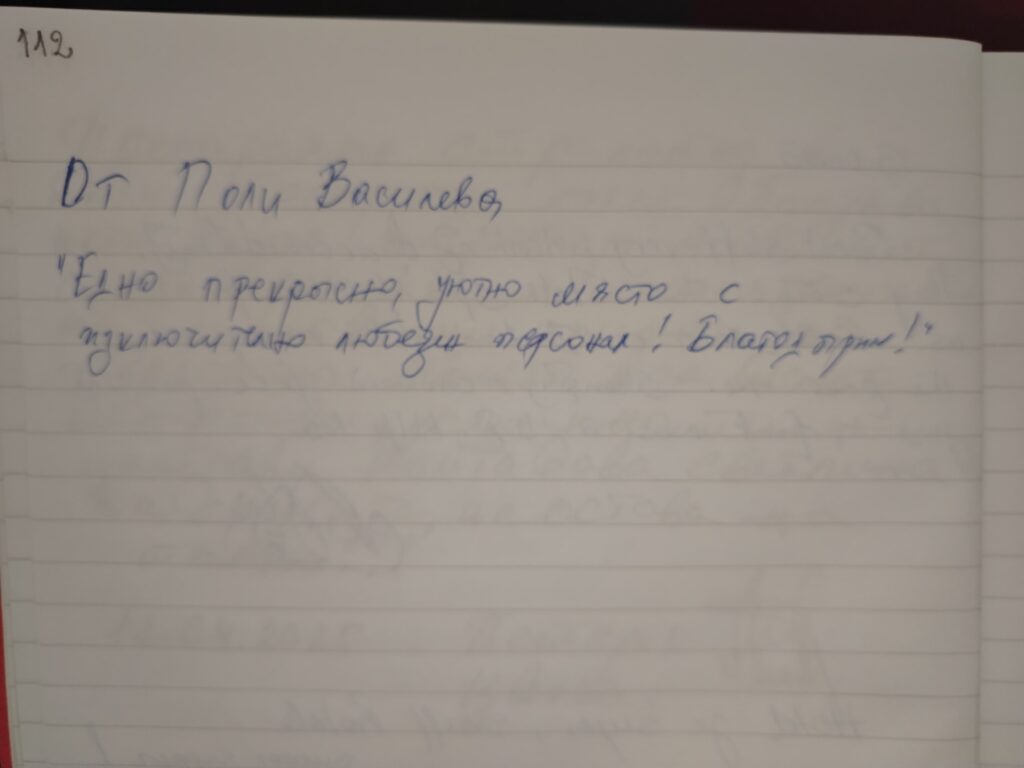 112
От Поли Василева
"Едно прекрасно, уютно място с
изключително любезен персонал! Благодарим!"